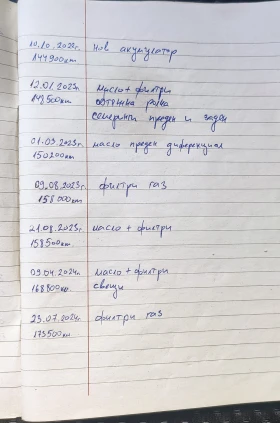 10.10.2022г. нов акумулатор
144900км
12.01.2023г. масло + филтри
148500км
семеринги преден и заден
01.03.2023г. масло преден диференциал
150200км
09.08.2023г. филтри газ
158000км
21.08.2023г. масло + филтри
158500км.
09.04.2024г. масло + филтри
168800км. свещи
23.07.2024г. филтри газ
173500км